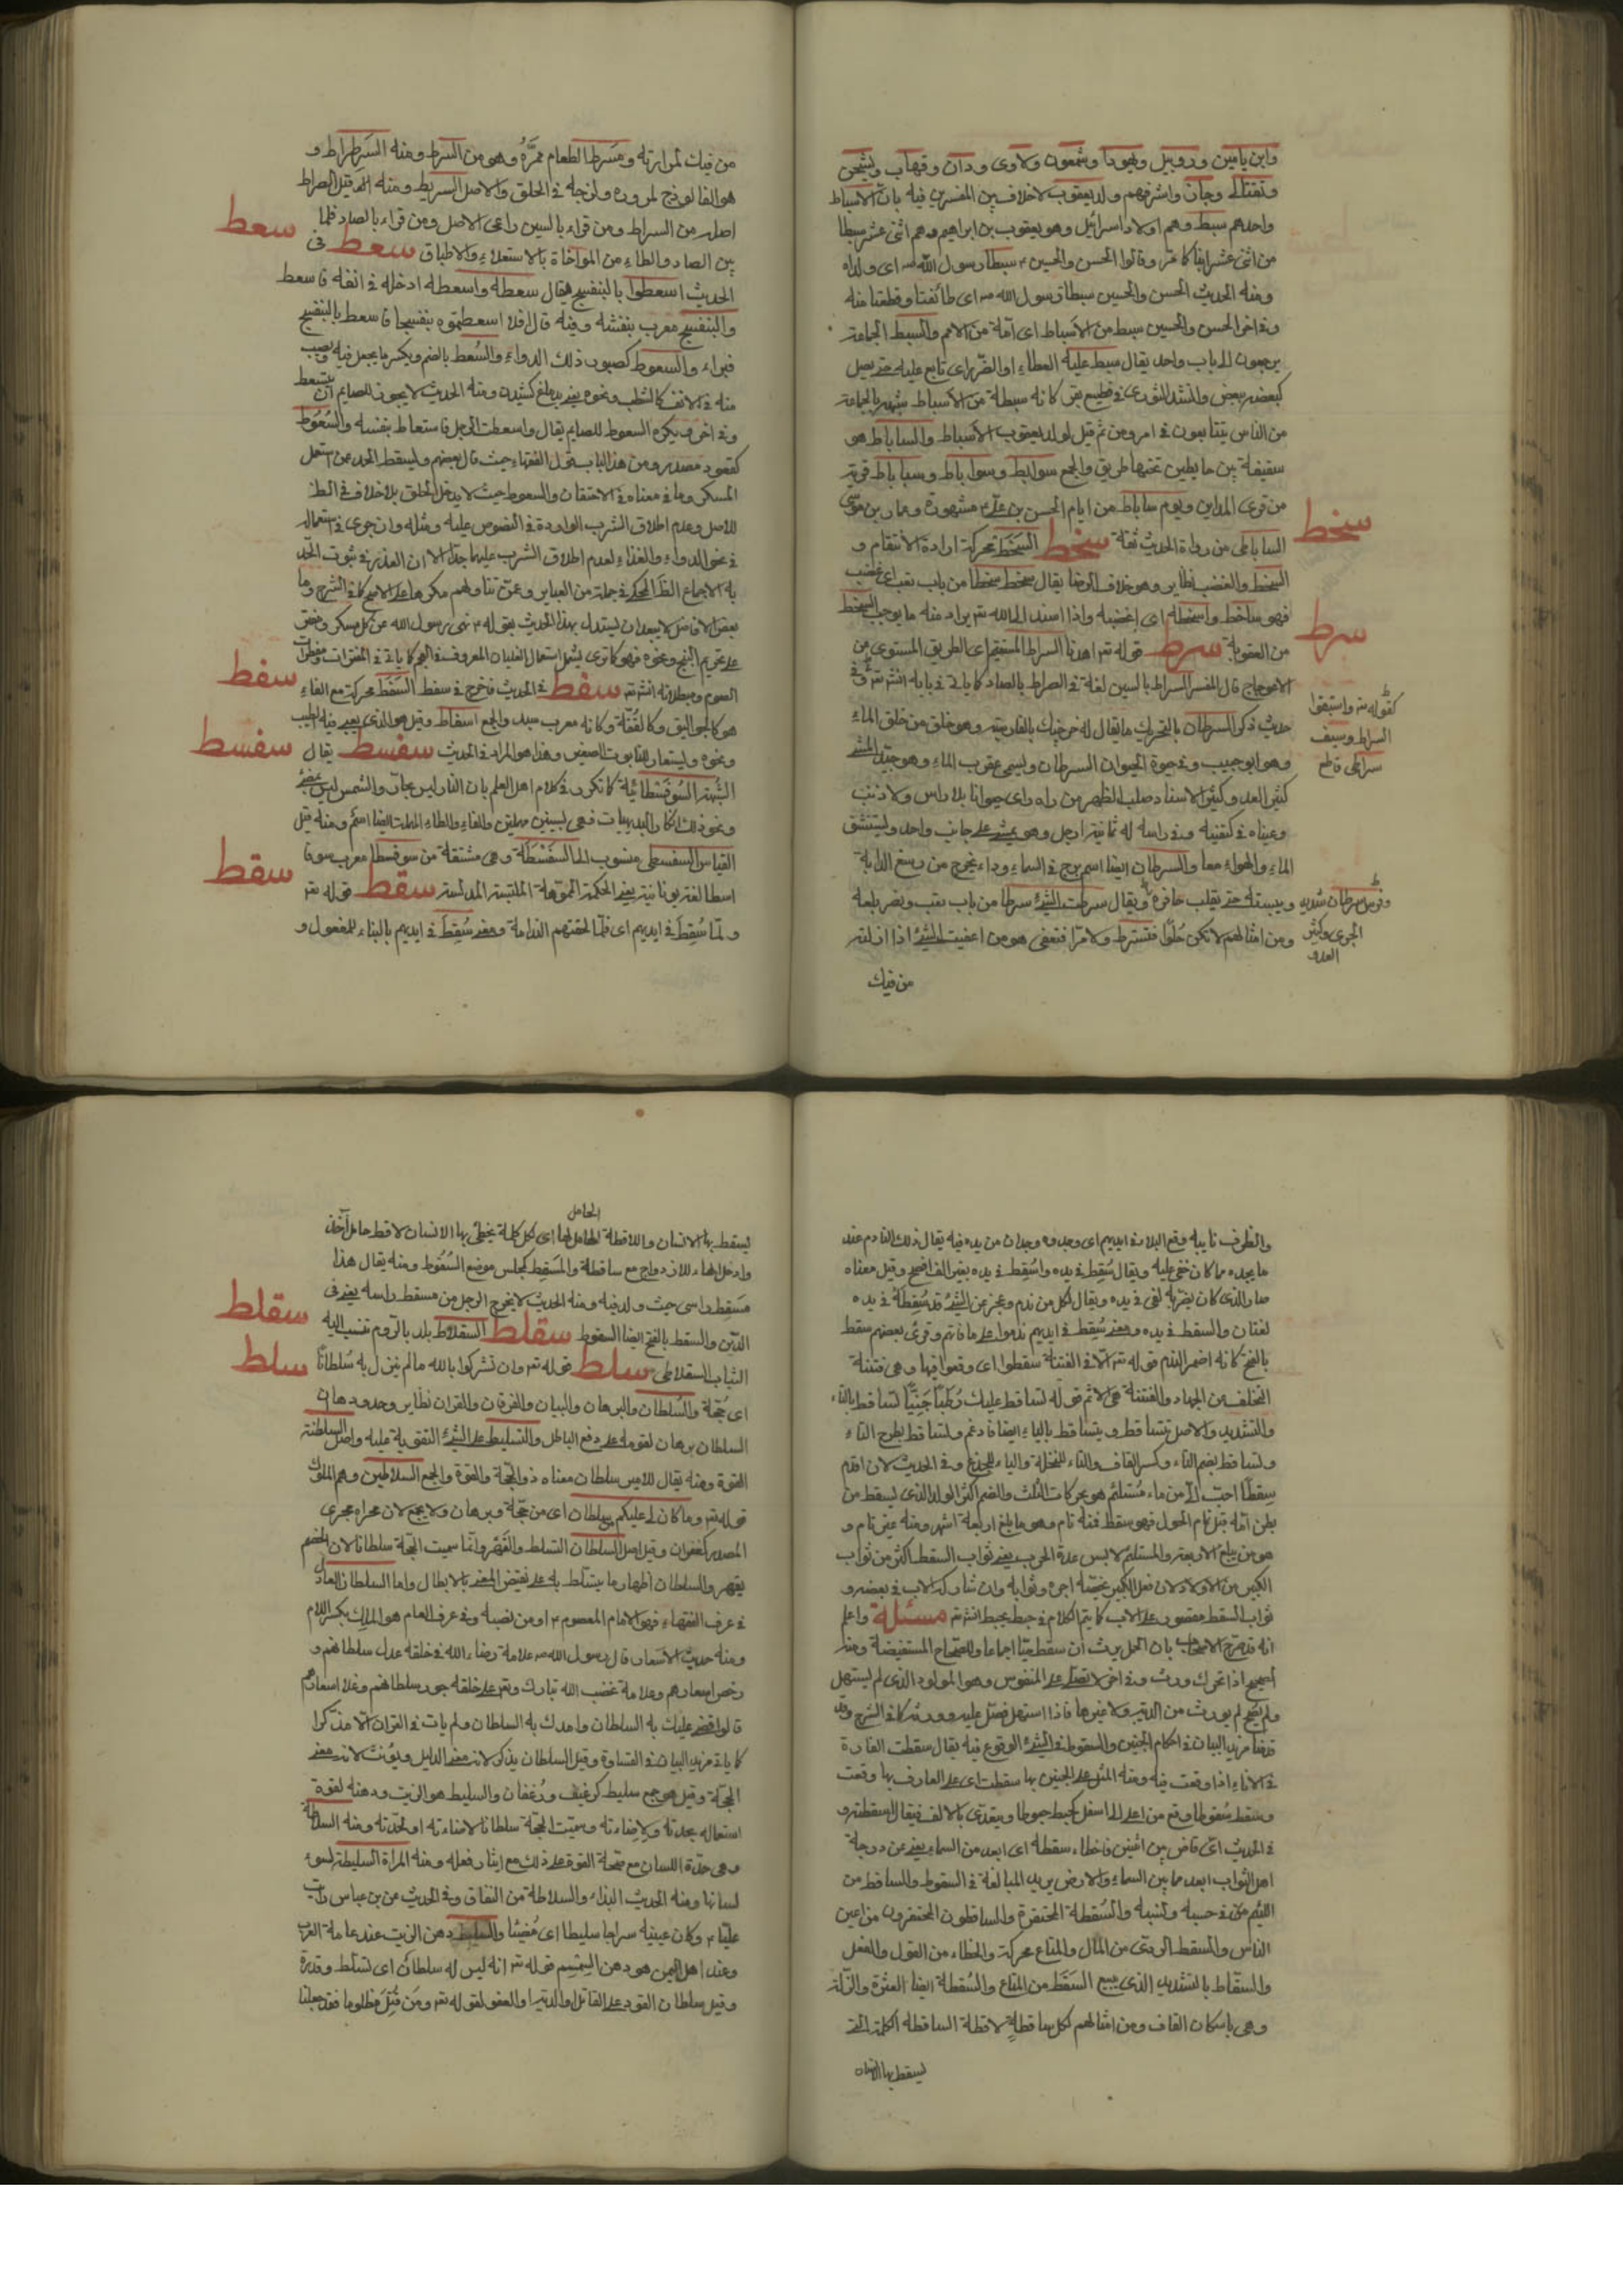 وابن يامين وروبيل ويهودا وشمعون ولاوى ودان وقهاب ويشجن
وتفتالى وجان واشرفهم ولد يعقوب لاخلاف بين المفسرين فيه بان الاسباط
واحدهم سبط وهم اولاد اسرائيل وهو يعقوب بن ابراهيم وهم اثنى عشر سبطا
من اثنى عشر ابنا كما مر وقالوا الحسن والحسين ع سبطا رسول الله ص اى ولداه
ومنه الحديث الحسن والحسين سبطا رسول الله ص اى طائفتا وقطعتا منه
وفى اخر الحسن والحسين سبط من الاسباط اى امة من الامم والسبط الجماعة
يرجعون الى اب واحد يقال سبط عليه العطاء او الضرر اى تابع عليه حتى يصل
كبعضه ببعض وانشد الثورى فى قطيع بقر كانه سبطة من الاسباط شبهه بالجماعة
من الناس يتتابعون فى امر ومن ثم قيل لولد يعقوب الاسباط والساباط هو
سقيفة بين حايطين تحتها طريق والجمع سوابيط وسواباط وساباط قرية
من قرى المداين ويوم ساباط من ايام الحسن بن على ع مشهورة وعمار بن موسى
الساباطى من رواة الحديث ثقة سخط السخط محركة ارادة الانتقام و
سخط
السخط والغضب نظاير وهو خلاف الرضا يقال سخط سخطا من باب تعب اى غضب
فهو ساخط واسخطه اى اغضبه واذا اسند الى الله تع يراد منه ما يوجب السخط
من العقوبة سرط قوله تع اهدنا السراط المستقيم اى الطريق المستوى من
سرط
الاعوجاج قال المفسر السراط بالسين لغة فى الصراط بالصاد كما ياتى فى بابه انش تع وفى
كقوله تع واستبقوا
السراط وسيف
سراطى قاطع
حديث ذكر السرطان بالتحريك ما يقال له خرچنك بالفارسية وهو خلق من خلق الماء
وهو ابو جبيب وفى حيوة الحيوان السرطان ويسمى عقرب الماء وهو جيد المشى
كثير العدو كثير الاسنان صلب الظهر من راه راى حيوانا بلا راس ولا ذنب
وعيناه فى كتفيه وفى راسه له ثمانية ارجل وهو يمشى على جانب واحد ويستنشق
الماء والهواء معا والسرطان ايضا اسم برج فى السماء وداء يخرج من رسغ الدابة
وييبسه حتى يقلب حافره ويقال سرطت الشىء سرطا من باب تعب ونصر بلعه
وفرس سرطان شديد
الجرى وكثير
العدو
ومن امثالهم لا تكن حلوا فتسترط ولا مرا فتعقى هو من اعقيت الشىء اذا ازلته
من فيك
من فيك لمرارته ومسرط الطعام ممره وهو من السرط ومنه السرطراط و
هو الفالوذج لمروره ولزجه فى الحلق والاصل السريط ومنه قيل الصراط
اصله من السراط ومن قراء بالسين راعى الاصل ومن قراء بالصاد فلما
بين الصاد والطاء من المواخاة بالاستعلاء والاطباق سعط فى
سعط
الحديث اسعطوا بالبنفسج يقال سعطه واسعطه ادخله فى انفه فاسعط
والبنفسج معرب بنفشه وفيه قال افلا اسعطتموه بنفسجا فاسعط بالبنفسج
فبراء والسعوط كصبور ذلك الدواء والسعط بالضم ويكسر ما يجعل فيه ويصب
منه فى الانف ومنه الحديث لا يجوز للصايم ان يستعط
وفى اخر ويكره السعوط للصايم يقال واسعطت الرجل فاستعاط بنفسه والسعوط
كقعود مصدر ومن هذا الباب قول الفقهاء حيث قال بعضهم ويسقط الحد عن استعمل
المسكر وما فى معناه فى الاحتقان والسعوط حيث لا يدخل الحلق بلا خلاف فى الظ
للاصل وعدم اطلاق الشرب الواردة فى النصوص عليه ومثله وان جرى فى استعماله
فى نحو الدواء والغذاء لعدم اطلاق الشرب عليهما جدا الا ان العذر فى ثبوت الحد
به الاجماع الظ المحكى فى جملة من العباير وعمن تناولهم مكرها على الاصح كما فى الشرح وما
بعض الافاضل لا يبعد ان يستدل بهذا الحديث بقوله ع نهى رسول الله عن كل مسكر ومفتر
على تحريم البنج ونحوه فهو كما ترى يشمل استعمال الغليان المعروف كما ياتى فى المفترات ومفطرات
الصوم ومبطلاته انش تع سفط فى الحديث فاخرج فى سفط السفط محركة مع الفاء
سفط
هو كالجوالق وكالقفة وكانه معرب سبد والجمع اسفاط وقيل هو الذى يعبى فيه الطيب
ونحوه ويستعار للتابوت الصغير وهذا هو المراد فى الحديث سفسط يقال
سفسط
الشبهة السوفسطائية كما تكرر فى كلام اهل العلم بان النار ليس بحار والشمس ليس بمضىء
ونحو ذلك انكار البديهيات فهى بسينين مهملتين والفاء والطاء المهملة ايضا اسم ومنه قيل
القياس السفسطى منسوب الى السفسطة وهى مشتقة من سوفسطا معرب سوفا
اسطا لغة يونانية يعنى الحكمة المموهة الملتبسة المدلسة سقط قوله تع
سقط
ولما سقط فى ايديهم اى فلما لحقتهم الندامة ومعنى سقط فى ايديهم بالبناء للمفعول و
والظرف نايبه وقع البلاء فى ايديهم اى وجدوه وجدان من يده فيه يقال ذلك للنادم عند
ما يجده مما كان خفى عليه ويقال سقط فى يده واسقط فى يده بغير الف افصح وقيل معناه
صار الذى كان يضر به لقى فى يده ويقال لكل من ندم وعجز عن الشىء قد سقط فى يده
لغتان والسقط فى يده ومعنى سقط فى ايديهم ندموا على ما فاتهم وقرىء بعضهم سقط
بالفتح كانه اضمر الندم قوله تع الا فى الفتنة سقطوا اى وقعوا فيها وهى فتنة
التخلف عن الجهاد والفتنة هى الاثم قوله تساقط عليك رطبا جنيا تساقط بالتاء
والتشديد والاصل تتساقط ويتساقط بالياء ايضا فادغم وتساقط بطرح التاء
وتساقط بضم التاء وكسر القاف والتاء للنخلة والياء للجذع وفى الحديث لان اقدم
سقطا احب الى من ماءة مستلئم هو بحركات الثلث والضم اكثر الولد الذى يسقط من
بطن امه قبل تمام الحول فهو سقط فمنه تام وهو ما بلغ اربعة اشهر ومنه غير تام و
هو من يبلغ الاربعة والمستلئم لابس عدة الحرب يعنى ثواب السقط اكثر من ثواب
الكبير من الاولاد لان فعل الكبير يخصه اجره وثوابه وان شاركه الاب فى بعضه و
ثواب السقط مقصور على الاب كما يتم الكلام فى حبط يحبط انش تع مسئلة واعلم
انه قد صرح الاصحاب بان الحمل يرث ان سقط حيا اجماعا وللصحاح المستفيضة ومنه
الصحيح اذا تحرك ورث وفى اخر لا تصل على المنفوس وهو المولود الذى لم يستهل
ولم يصح لم يورث من الدية ولا غيرها فاذا استهل فصل عليه وورثه كما فى الشرح وقد
قدمنا مزيد البيان فى احكام الجنين والسقوط فى الشىء الوقوع فيه يقال سقطت الفارة
فى الاناء اذا وقعت فيه ومنه المثل على الخبير بها سقطت اى على العارف بها وقعت
وسقط سقوطا وقع من اعلى الى اسفل كهبط هبوطا ويتعدى بالالف فيقال اسقطته و
فى الحديث اى قاض بين اثنين فاخطاء سقطه اى ابعد من السماء يعنى عن درجة
اهل الثواب ابعد مما بين السماء والارض يريد المبالغة فى السقوط والساقط من
اللئيم فى حسبه ونسبه والسقطة المحتقرة والساقطون المحتقرون من اعين
الناس والسقط الردى من المال والمتاع محركة والخطاء من القول والفعل
والسقاط بالتشديد الذى يبيع السقط من المتاع والسقطة ايضا العثرة والزلة
وهى باسكان القاف ومن امثالهم لكل ساقطة لاقطة الساقطة الكلمة التى
يسقط بها الانسان
الحامل
يسقط بها الانسان واللاقطة الحامل لها اى لكل كلمة يخطى بها الانسان لاقط حامل آخذ
وادخل الهاء للازدواج مع ساقطة والمسقط كمجلس موضع السقوط ومنه يقال هذا
مسقط راسى حيث ولد فيه ومنه الحديث لا يخرج الرجل من مسقط راسه يعنى فى
الدين والسقط بالفتح ايضا السقوط سقلط السقلاط بلد بالروم تنسب اليه
سقلط
الثياب السقلاطى سلط قوله تع وان تشركوا بالله ما لم ينزل به سلطانا
سلط
اى حجة والسلطان والبرهان والبيان والفرقان والقران نظاير وحدودها ان
السلطان برهان لقومه على دفع الباطل والتسليط على الشىء التقوية عليه واصل السلطنة
القوة ومنه يقال للامير سلطان معناه ذو الحجة والقوة والجمع السلاطين وهم الملوك
قوله تع وما كان لى عليكم من سلطان اى من حجة وبرهان ولا يجمع لان مجراه مجرى
المصدر كغفران وقيل اصل السلطان التسلط والقهر وانما سميت الحجة سلطانا لان الخصم
يقهر والسلطان اظهار ما يتسلط به على نقيض المعنى بالابطال واما السلطان العادل
فى عرف الفقهاء فهو الامام المعصوم ع او من نصبه وفى عرف العام هو الملك بكسر اللام
ومنه حديث الاسعار قال رسول الله ص علامة رضاء الله فى خلقه عدل سلطانهم و
رخص اسعارهم وعلامة غضب الله تبارك وتع على خلقه جور سلطانهم وغلاء اسعارهم
قالوا قضى عليك به السلطان وامدك به السلطان ولم يات فى القران الا مذكرا
كما ياتى مزيد البيان فى القساوة وقيل السلطان يذكر لانه معنى الدليل ويؤنث لانه معنى
الحجة وقيل هو جمع سليط كرغيف ورغفان والسليط هو الزيت ودهنه لقوة
استعاله بحدته ولاضاءته وسميت الحجة سلطانا لاضاءته او لحدته ومنه السلاطة
وهى حدة اللسان مع صحة القوة على ذلك مع ايثار فعله ومنه المراة السليطة لسوء
لسانها ومنه الحديث البذاء والسلاطة من النفاق وفى الحديث عن بن عباس رايت
عليا ع وكان عينيه سراجا سليطا اى مضيئا والسليط دهن الزيت عند عامة العرب
وعند اهل اليمن هو دهن السمسم قوله تع انه ليس له سلطان اى تسلط وقدرة
وقيل سلطان القود على القاتل او الدية او العفو لقوله تع ومن قتل مظلوما فقد جعلنا